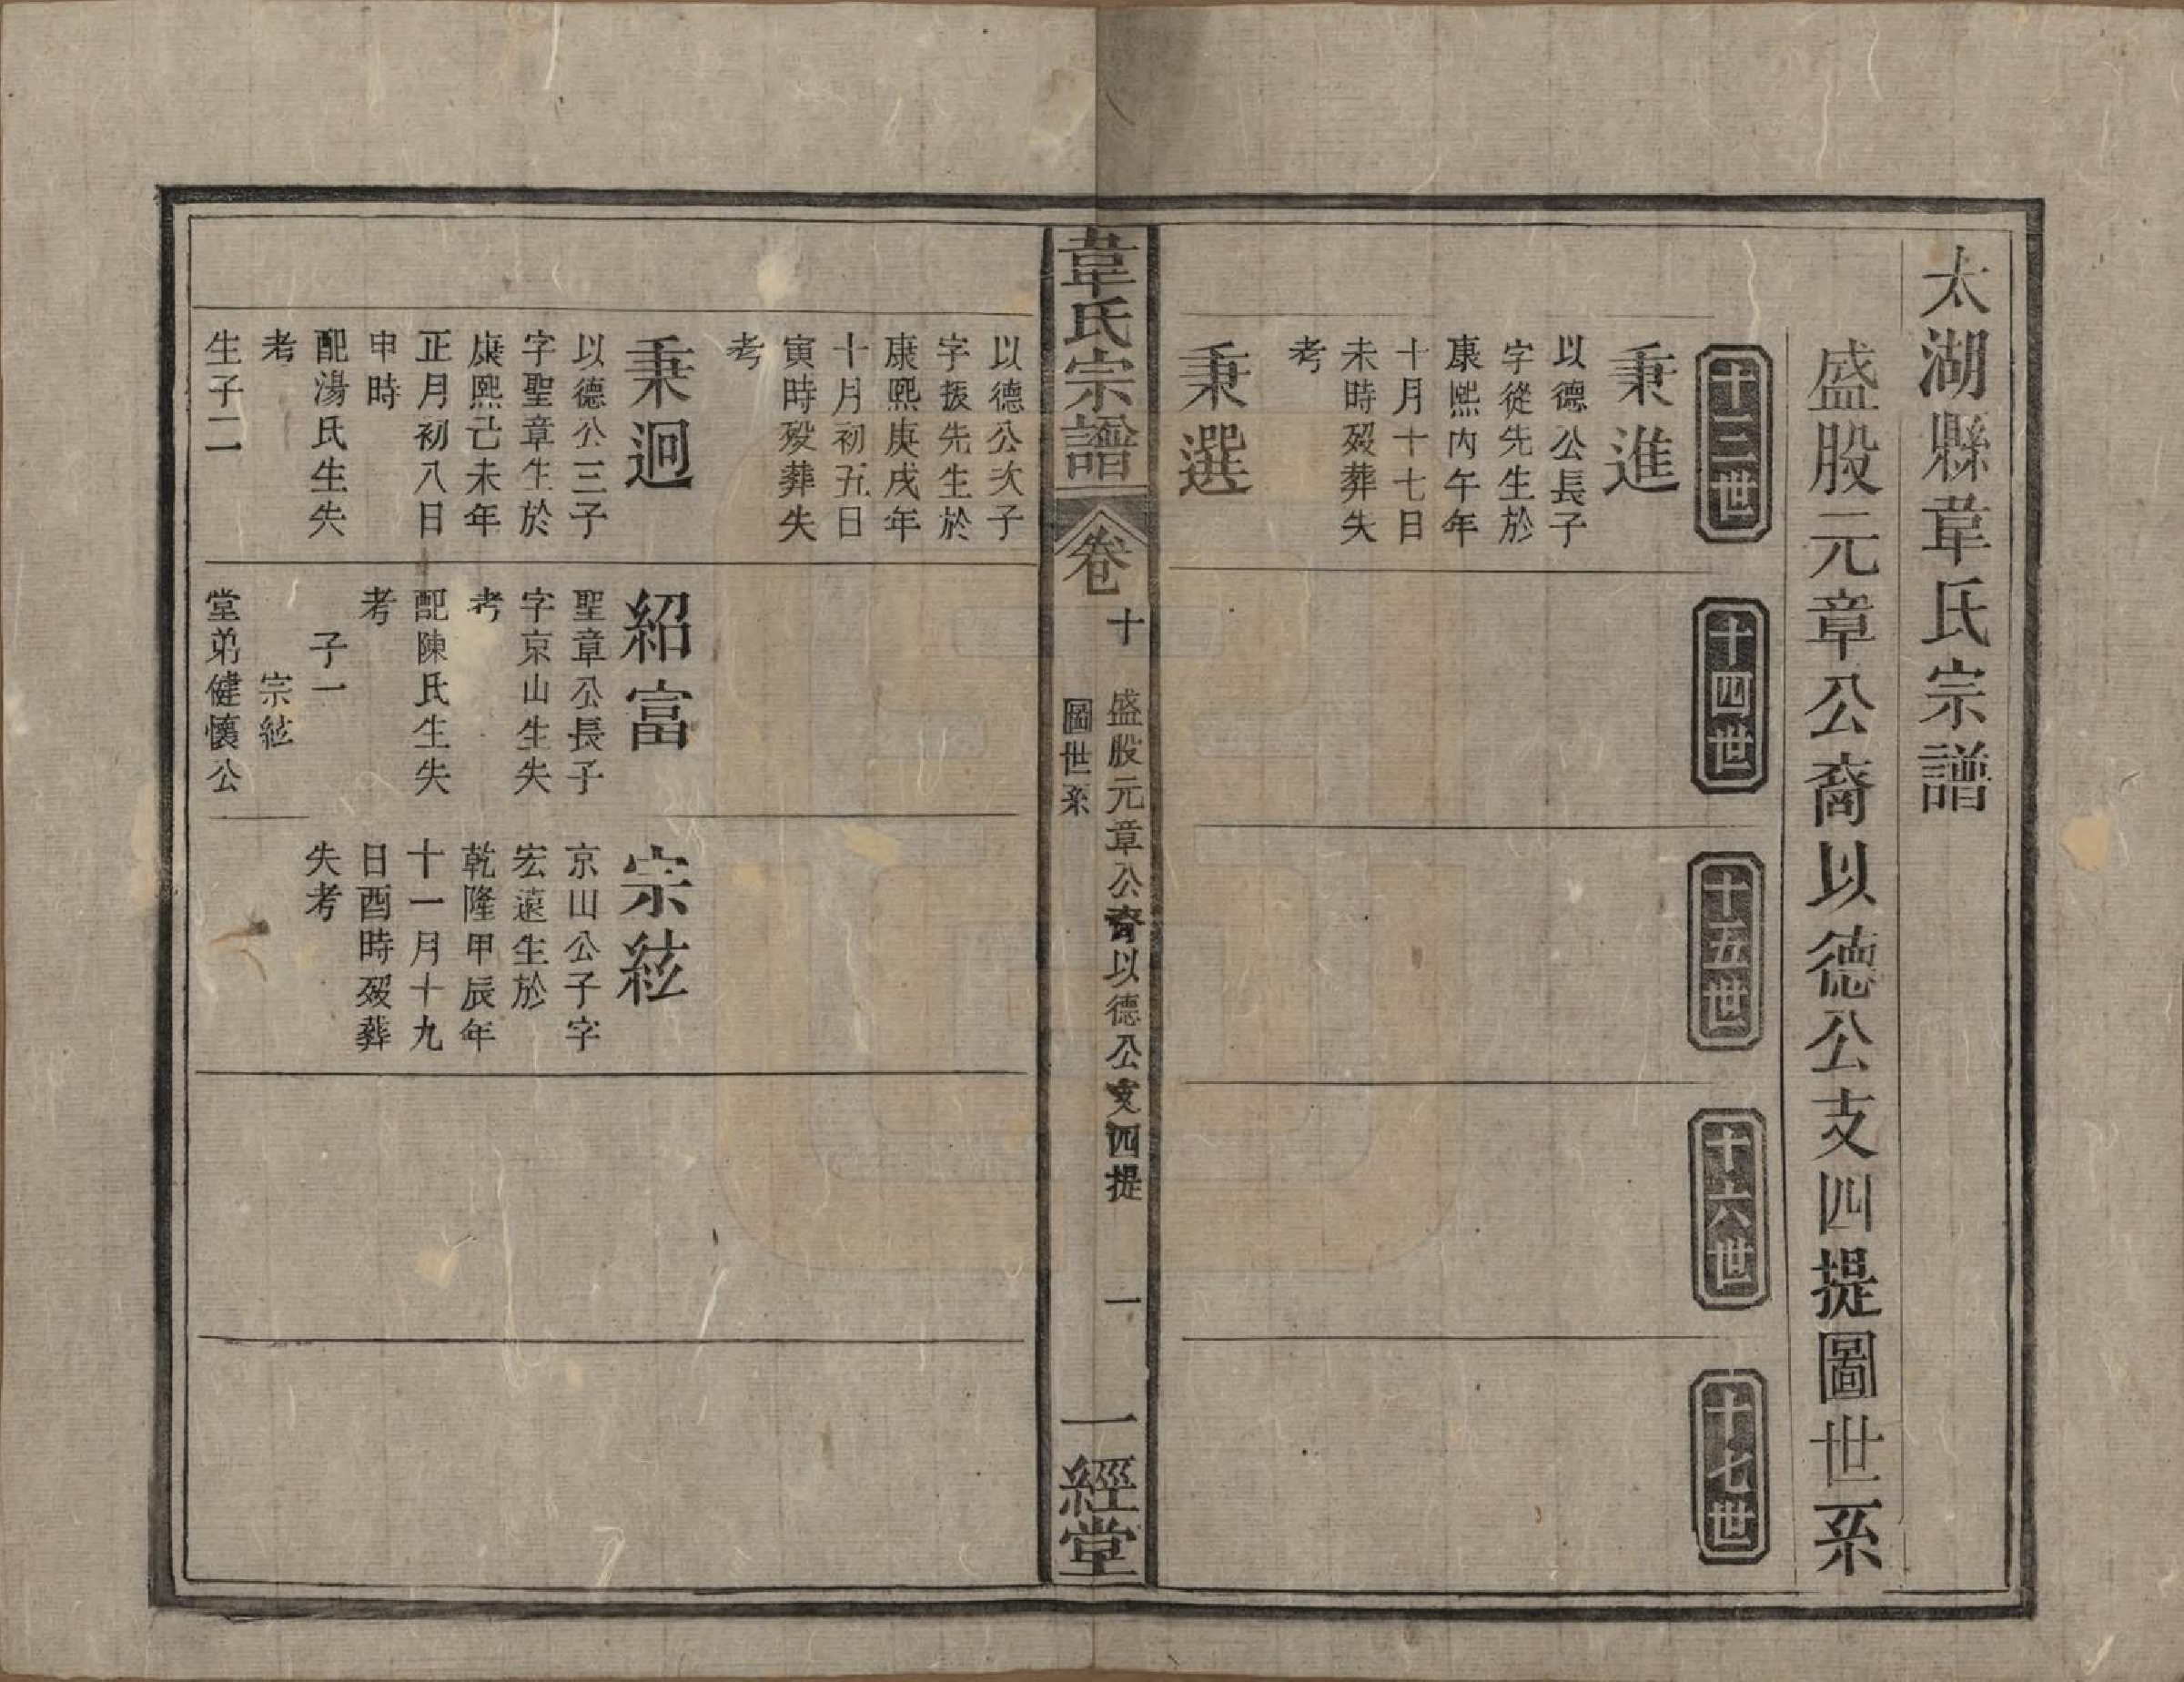 太湖縣韋氏宗譜
盛股元章公裔以德公支四提圖世系
十三世
十四世
十五世
十六世
十七世
秉進
以德公長子
字從先生於
康熙丙午年
十月十七日
未時歿葬失
考
秉選
韋氏宗譜
卷十
盛股元章公裔以德公支四提
圖世系
一
一經堂
以德公次子
字振先生於
康熙庚戌年
十月初五日
寅時歿葬失
考
秉迥
以德公三子
字聖章生於
康熙己未年
正月初八日
申時
配湯氏生失
考
生子二
紹富
聖章公長子
字京山生失
考
配陳氏生失
考
子一
宗紘
堂弟健懷公
宗紘
京山公子字
宏遠生於
乾隆甲辰年
十一月十九
日酉時歿葬
失考